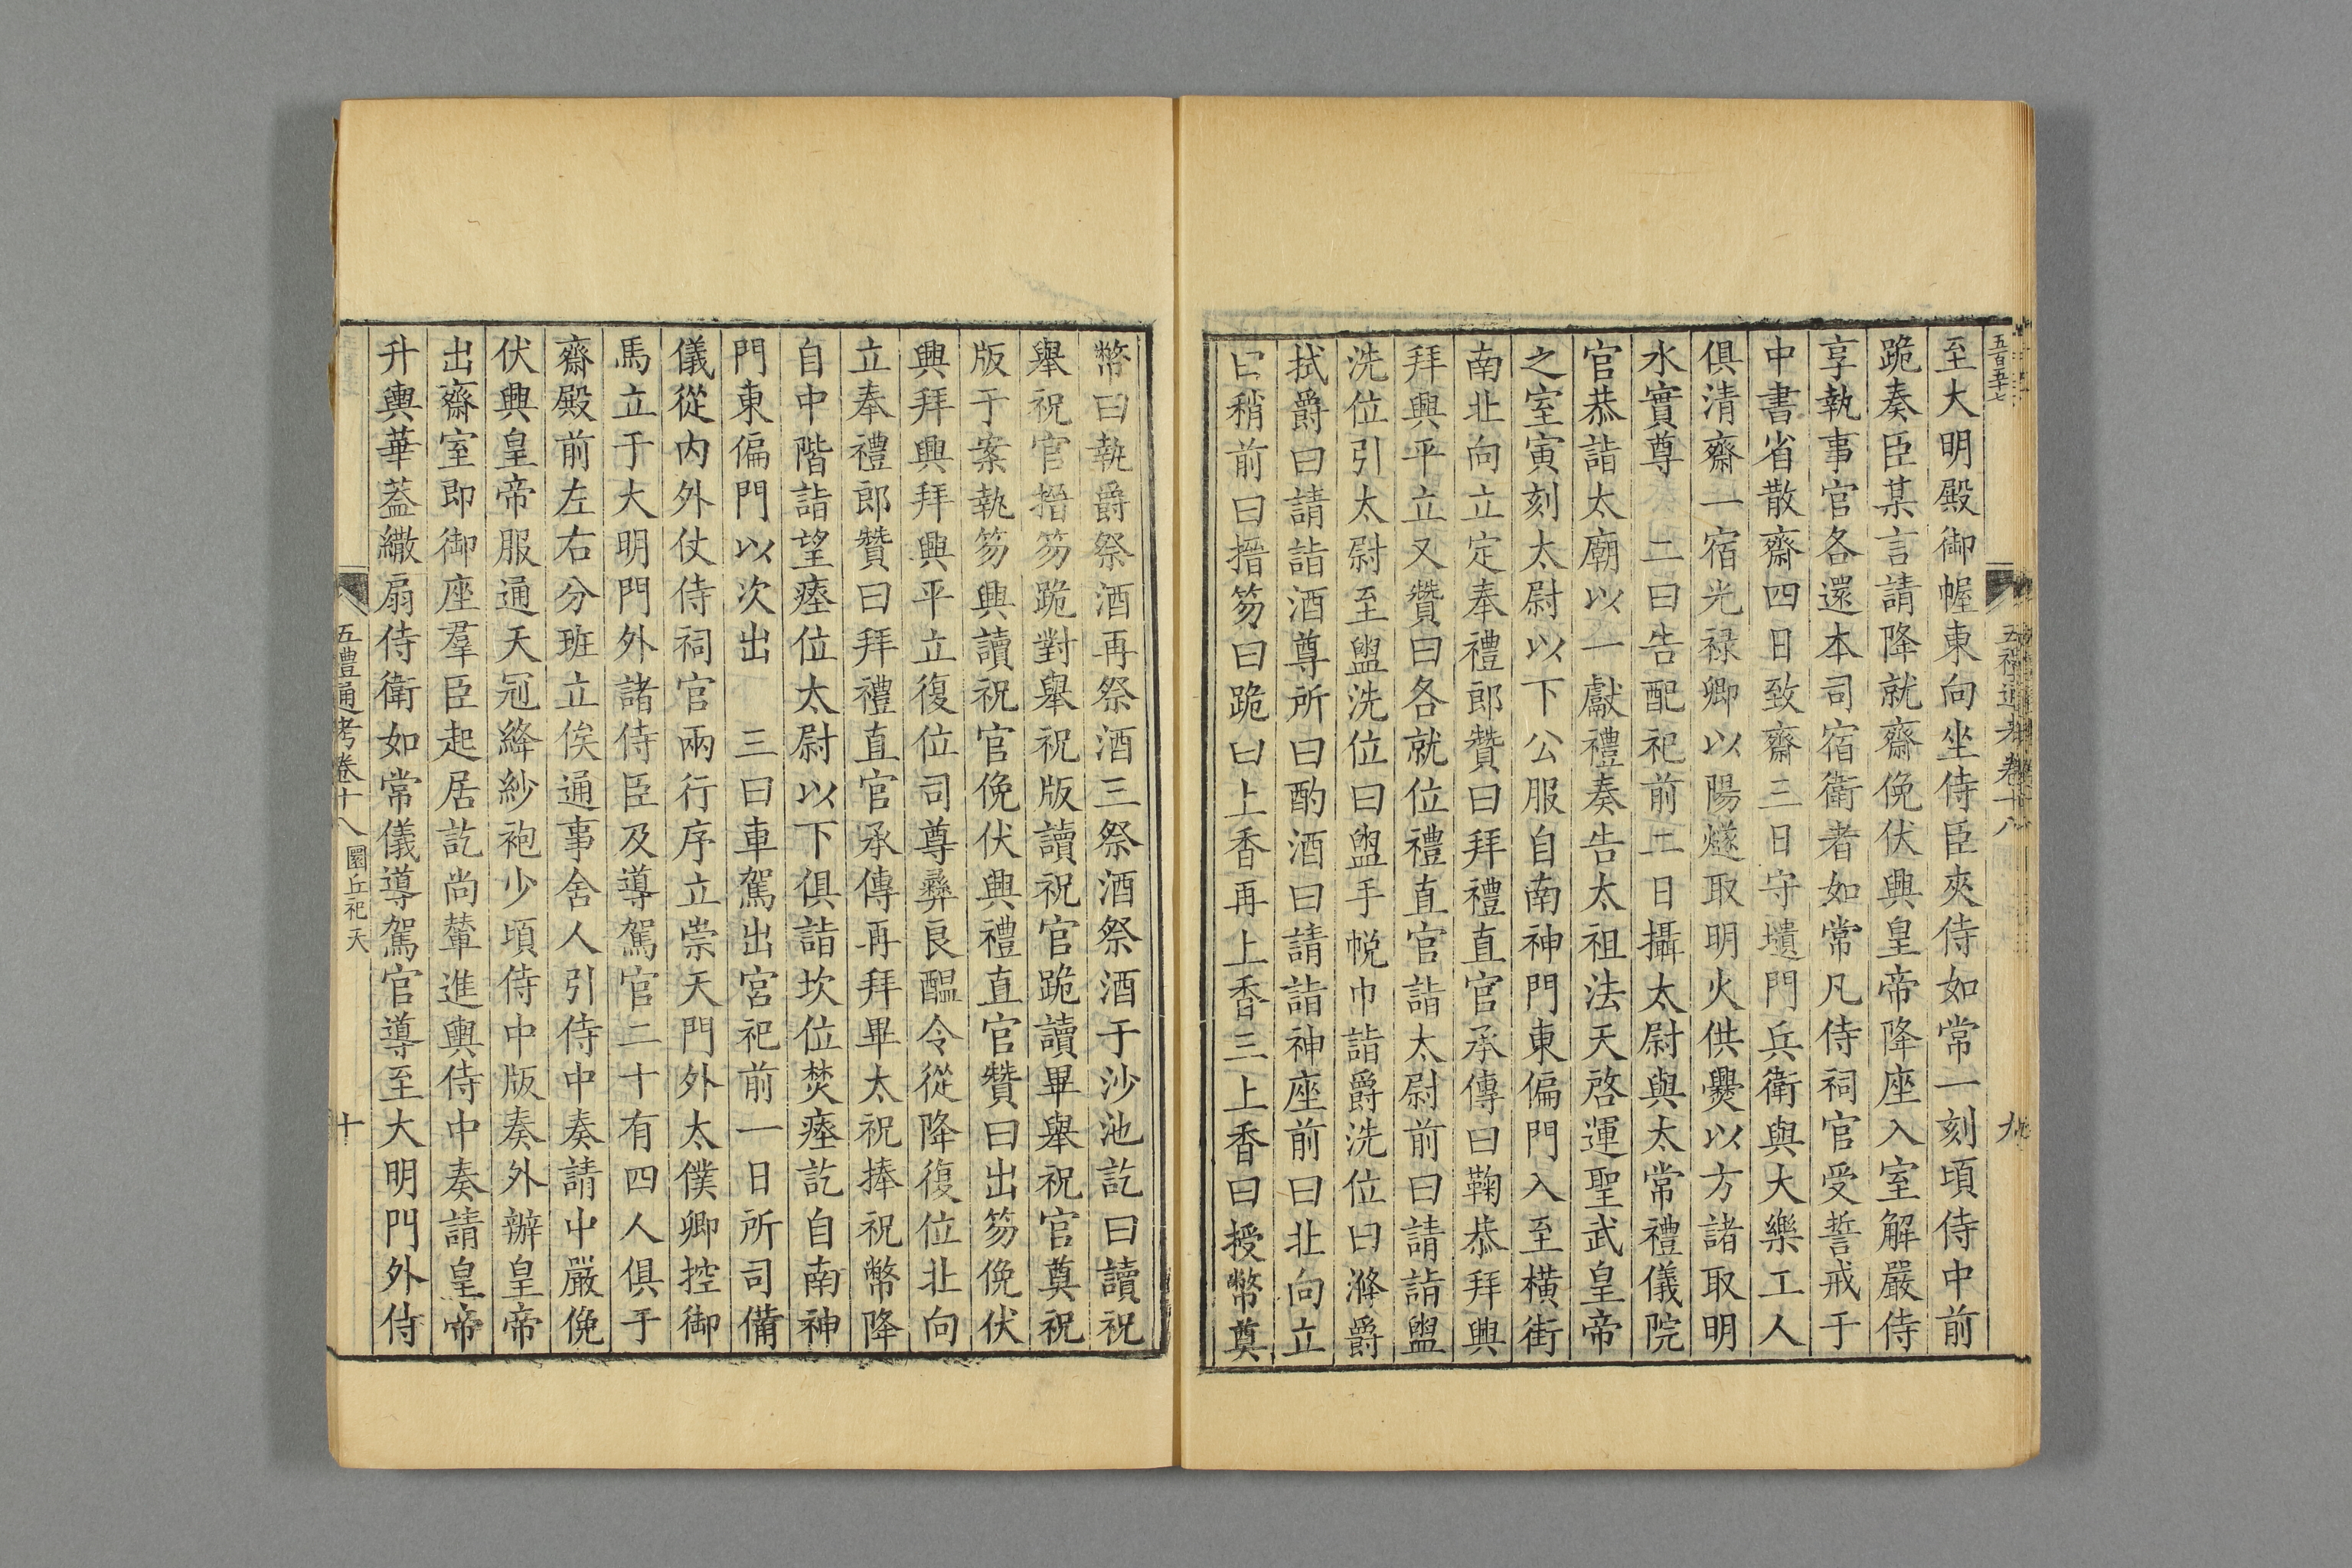 五百五十七
五禮通考卷十八
九
至大明殿御幄東向坐侍臣夾侍如常一刻頃侍中前
跪奏臣某言請降就齋俛伏興皇帝降座入室解嚴侍
享執事官各還本司宿衛者如常凡侍祠官受誓戒于
中書省散齋四日致齋三日守壝門兵衛與大樂工人
俱清齋一宿光禄卿以陽燧取明火供爨以方諸取明
水實尊　二曰告配祀前二日攝太尉與太常禮儀院
官恭詣太廟以一獻禮奏告太祖法天啓運聖武皇帝
之室寅刻太尉以下公服自南神門東偏門入至橫街
南北向立定奉禮郎贊曰拜禮直官承傳曰鞠恭拜興
拜興平立又贊曰各就位禮直官詣太尉前曰請詣盥
洗位引太尉至盥洗位曰盥手帨巾詣爵洗位曰滌爵
拭爵曰請詣酒尊所曰酌酒曰請詣神座前曰北向立
曰稍前曰搢笏曰跪曰上香再上香三上香曰授幣奠
幣曰執爵祭酒再祭酒三祭酒祭酒于沙池訖曰讀祝
舉祝官搢笏跪對舉祝版讀祝官跪讀畢舉祝官奠祝
版于案執笏興讀祝官俛伏興禮直官贊曰出笏俛伏
興拜興拜興平立復位司尊彝良醞令從降復位北向
立奉禮郎贊曰拜禮直官承傳再拜畢太祝捧祝幣降
自中階詣望瘞位太尉以下俱詣坎位焚瘞訖自南神
門東偏門以次出　三曰車駕出宮祀前一日所司備
儀從內外仗侍祠官兩行序立崇天門外太僕卿控御
馬立于大明門外諸侍臣及導駕官二十有四人俱于
齋殿前左右分班立俟通事舍人引侍中奏請中嚴俛
伏興皇帝服通天冠絳紗袍少頃侍中版奏外辦皇帝
出齋室即御座羣臣起居訖尚輦進輿侍中奏請皇帝
升輿華蓋繖扇侍衛如常儀導駕官導至大明門外侍
五禮通考卷十八　圜丘祀天
十